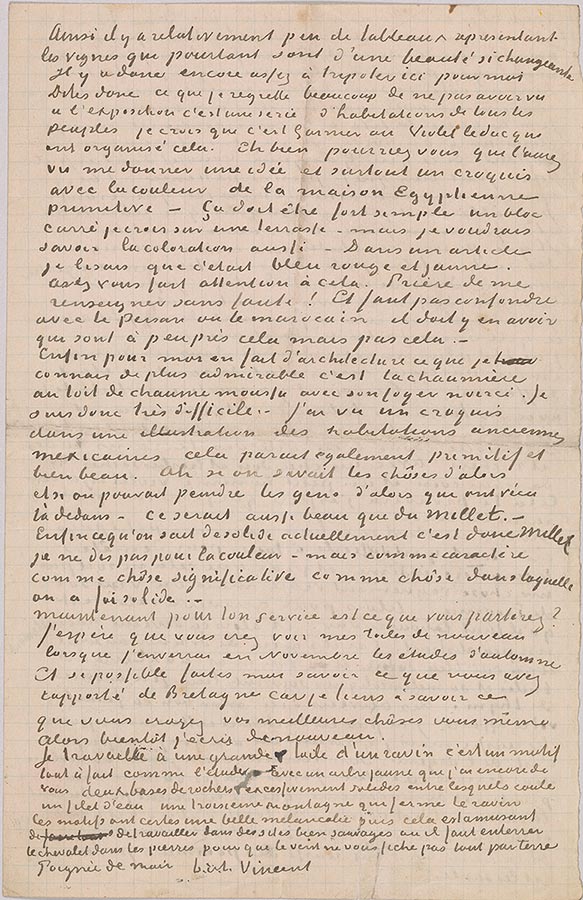 Ainsi il y a relativement peu de tableaux representant
les vignes que pourtant sont d'une beauté si changeante
Il y a donc encore assez à tripoter ici pour moi
Dites donc ce que je regrette beaucoup de ne pas avoir vu
a l'exposition c'est une serie d'habitations de tous les
peuples je crois que c'est Garnier ou Violet leduc qui
ont organisé cela. Eh bien pourriez vous que l'aurez
vu me donner une idée et surtout un croquis
avec la couleur de la maison Egyptienne
primitive – Ça doit être fort simple un bloc
carré je crois sur une terrasse – mais je voudrais
savoir la coloration aussi – Dans un article
je lisais que c'était bleu rouge et jaune.
avez vous fait attention à cela. Prière de me
renseigner sans faute ! Et faut pas confondre
avec le Persan ou le marocain il doit y en avoir
qui sont à peu près cela mais pas cela. –
Enfin pour moi en fait d'architecture ce que je
connais de plus admirable c'est la chaumière
au toit de chaume moussu avec son foyer noirci. Je
suis donc très difficile. – J'ai vu un croquis
dans une illustration des habitations anciennes
mexicaines cela parait également primitif et
bien beau. Ah si on savait les chôses d'alors
et si on pouvait peindre les gens d'alors qui ont vécu
là dedans – ce serait aussi beau que du Millet. –
Enfin ce qu'on sait de solide actuellement c'est donc Millet
je ne dis pas pour la couleur – mais comme caractère
comme chôse significative comme chôse dans laquelle
on a foi solide. –
maintenant pour ton service est ce que vous partirez ?
J'espère que vous irez voir mes toiles de nouveau
lorsque j'enverrai en Novembre les études d'automne
Et si possible faites moi savoir ce que vous avez
rapporté de Bretagne car je tiens à savoir ce
que vous croyez vos meilleures chôses vous même
alors bientôt j'écris de nouveau.
Je travaille à une grande toile d'un ravin c'est un motif
tout à fait comme l'étude avec un arbre jaune que j'ai encore de
vous deux bases de rochers excessivement solides entre lesquels coule
un filet d'eau une troisieme montagne qui ferme le ravin
les motifs ont certes une belle melancolie puis cela est amusant
de travailler dans des sites bien sauvages ou il faut enterrer
le chevalet dans les pierres pour que le vent ne vous fiche pas tout par terre
Poignée de main Vincent